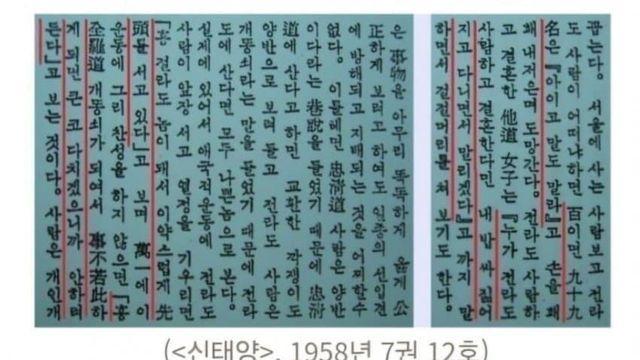 꼽는다。 서울에 사는 사람보고 전라
도 사람이 어떠냐하면 百이면 九十九
名은 『아이고 말도 말라』고 손을 홰
홰 내저으며 도망간다。 전라도 사람하
고 결혼한 他道 女子는 『누가 전라도
사람하고 결혼한다면 내 밥 싸 짊어
지고 다니면서 말리겠다』고 까지 말
하면서 절절머리를 쳐 보기도 한다。
은 事物을 아무리 똑똑하게 옳게 公
正하게 보려고 하여도 일종의 선입견
에 방해되고 지배되는 것을 어찌할수
없다。 이를테면 忠淸道 사람은 양반
이다라는 巷說을 들었기 때문에 忠淸
道에 산다고 하면 교만한 깍쟁이도
양반으로 보려 들고 전라도 사람은
개똥쇠라는 말을 들었기 때문에 전라
도에 산다면 모두 나쁜놈으로 본다。
실제에 있어서 애국적운동에 전라도
사람이 앞장 서고 열성을 기우리면
『흥 전라도 놈이 돼서 이약스럽게 先
頭를 서고 있다』고 보며 萬一에 이
운동에 그리 찬성을 하지 않으면 『흥
全羅道 개똥쇠가 되여서 事不若此하
게 되면 큰 코 다치겠으니까 안하려
든다』고 보는 것이다。 사람은 개인개
(<신태양>, 1958년 7권 12호)